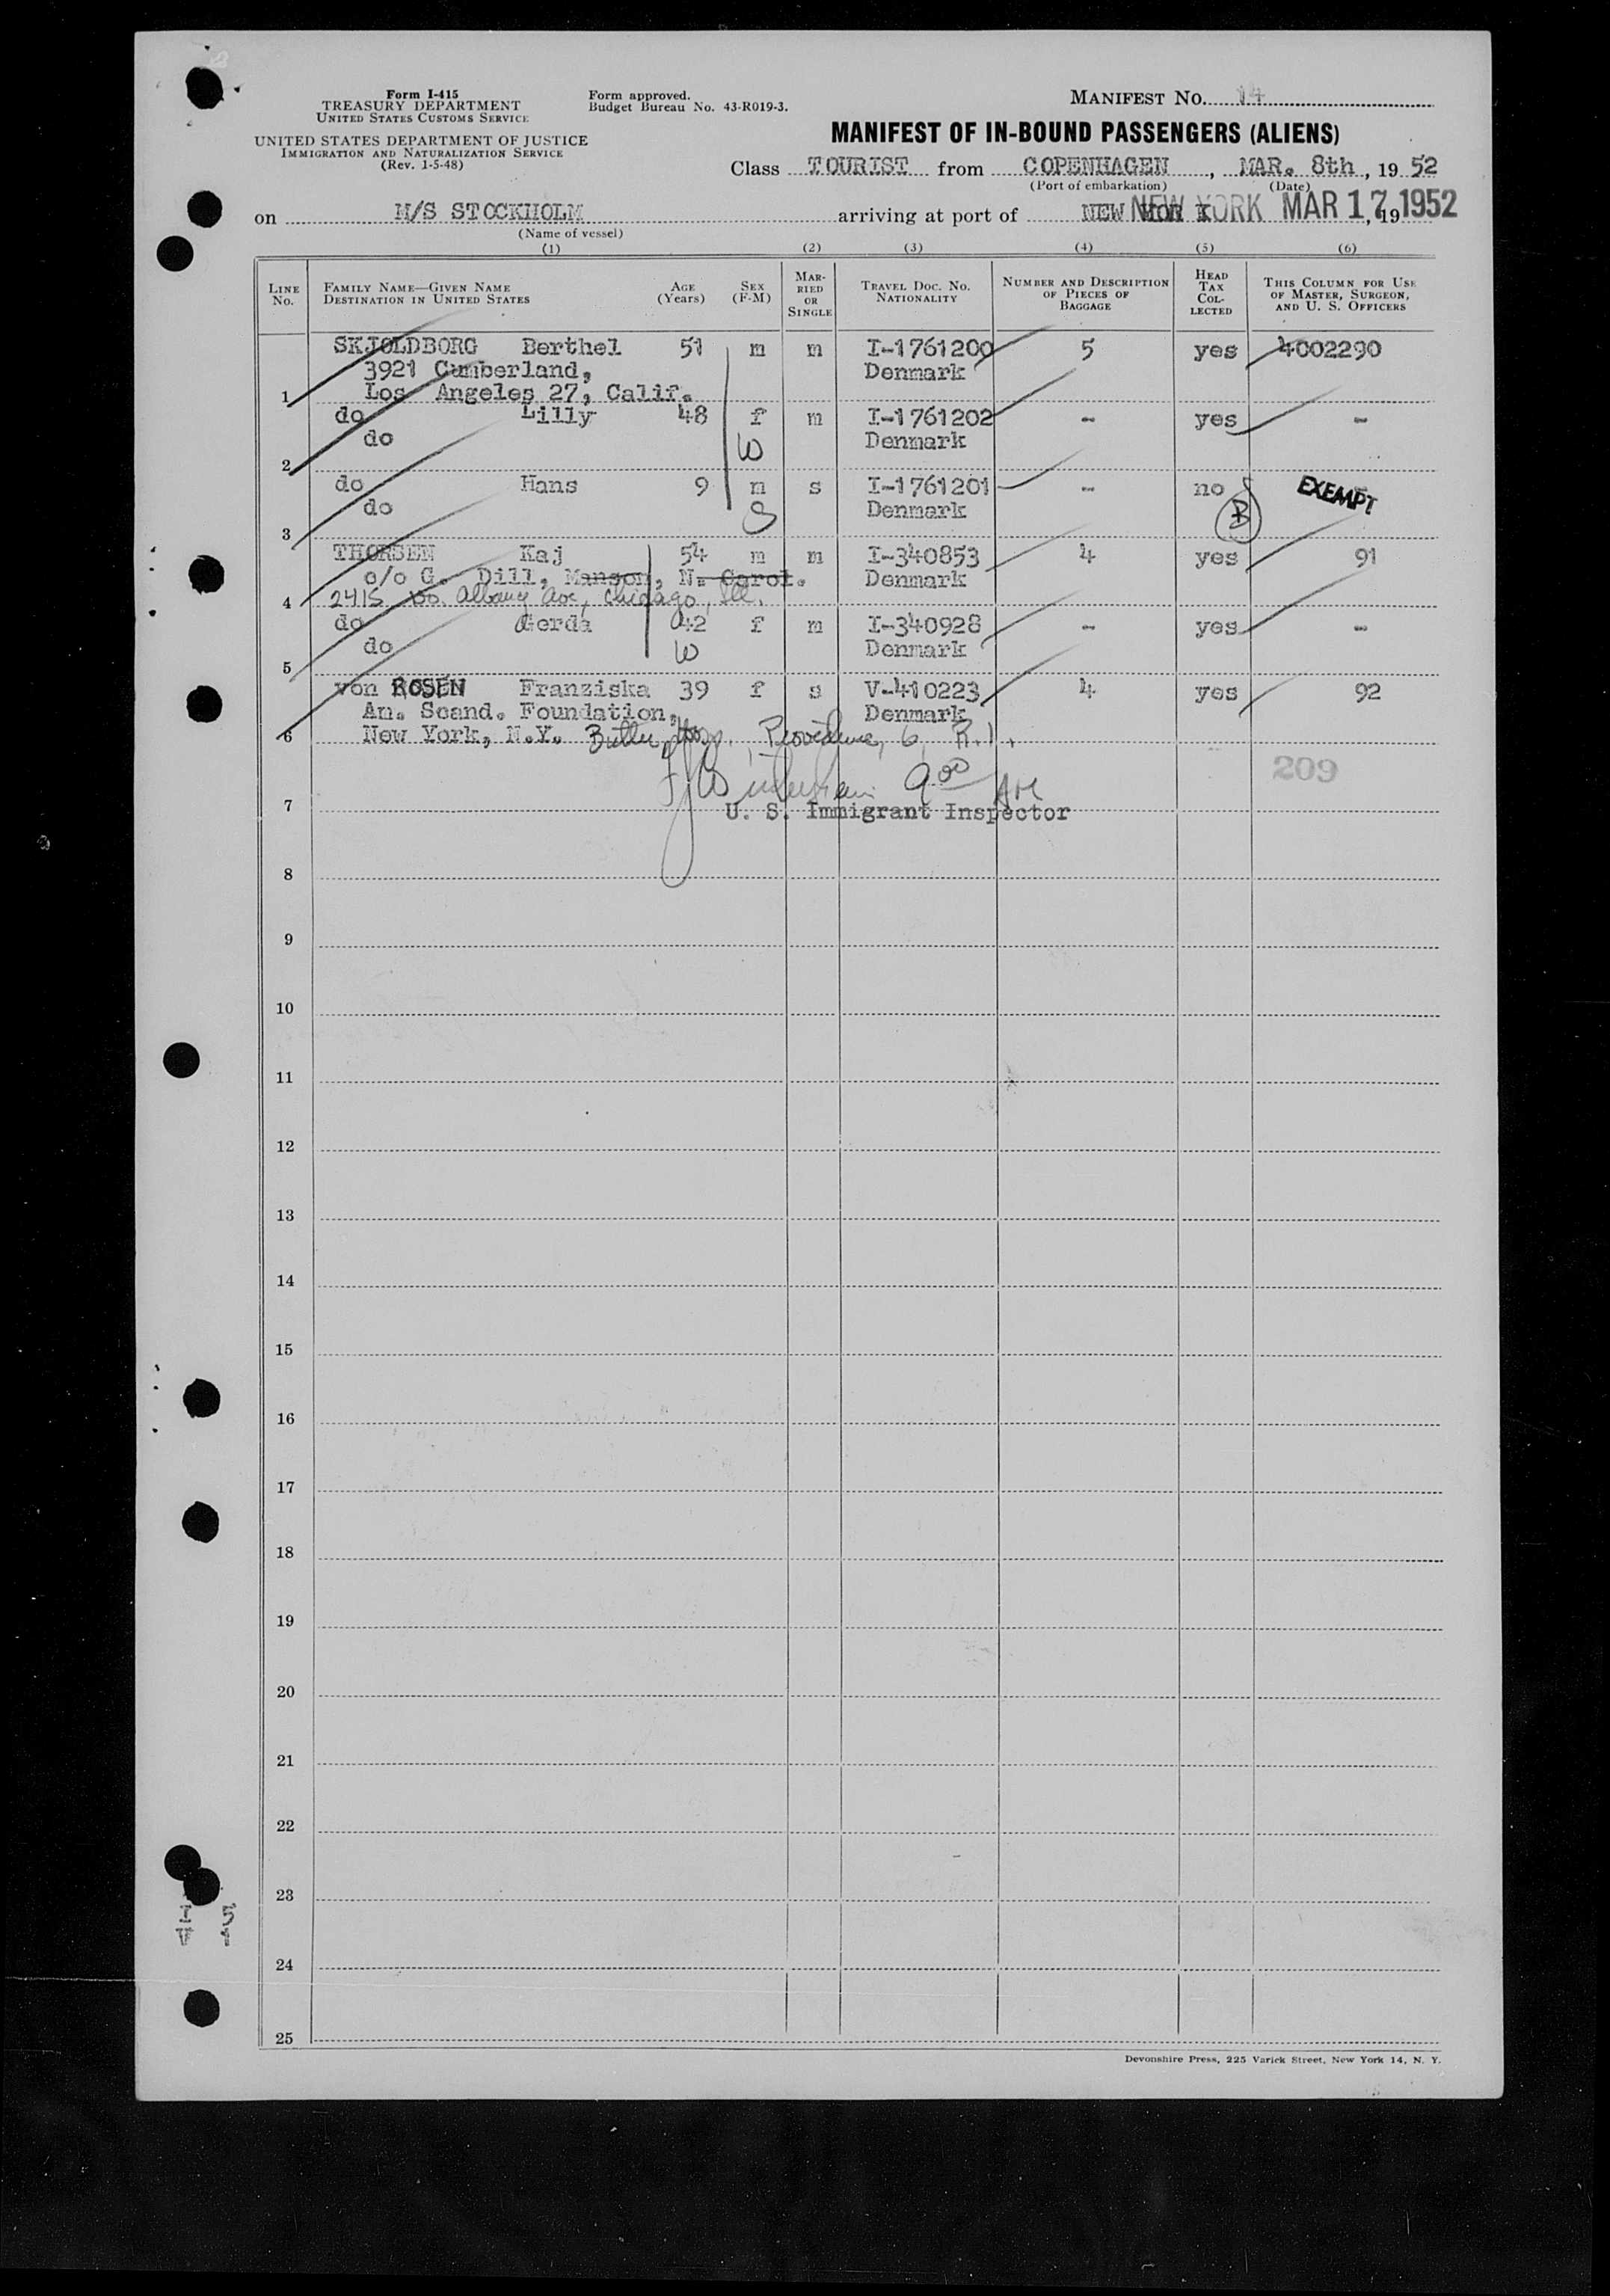 Form I-415
TREASURY DEPARTMENT
UNITED STATES CUSTOMS SERVICE
UNITED STATES DEPARTMENT OF JUSTICE
IMMIGRATION AND NATURALIZATION SERVICE
(Rev. 1-5-48)
Form approved.
Budget Bureau No. 43-R019-3.
MANIFEST No. 14
MANIFEST OF IN-BOUND PASSENGERS (ALIENS)
Class TOURIST from COPENHAGEN, MAR. 8th, 19 52
(Port of embarkation) (Date)
on M/S STOCKHOLM arriving at port of NEW YORK NEW YORK MAR 17, 19 1952
(Name of vessel)
(1) (2) (3) (4) (5) (6)
LINE No. FAMILY NAME—GIVEN NAME DESTINATION IN UNITED STATES AGE (Years) SEX (F-M) MARRIED OR SINGLE TRAVEL DOC. NO. NATIONALITY NUMBER AND DESCRIPTION OF PIECES OF BAGGAGE HEAD TAX COLLECTED THIS COLUMN FOR USE OF MASTER, SURGEON, AND U. S. OFFICERS
SKJOLDBORG Berthel 51 m m I-1761200 5 yes 4002290
3921 Cumberland, Denmark
1 Los Angeles 27, Calif.
do Lilly 48 f m I-1761202 - yes -
do W Denmark
2
do Hans 9 m s I-1761201 - no EXEMPT
do S Denmark B
3
THORSEN Kaj 54 m m I-340853 4 yes 91
c/o G. Dill, Manson, N. Carol. Denmark
4 2415 So. Albany Ave, Chicago, Ill.
do Gerda 42 f m I-340928 - yes -
do W Denmark
5
von ROSEN Franziska 39 f s V-410223 4 yes 92
Am. Scand. Foundation, Denmark
6 New York, N.Y. Butler Hosp., Providence, 6, R.I.
900 209
7 U. S. Immigrant Inspector
8
9
10
11
12
13
14
15
16
17
18
19
20
21
22
23
I 5
V 1
24
25
Devonshire Press, 225 Varick Street, New York 14, N. Y.